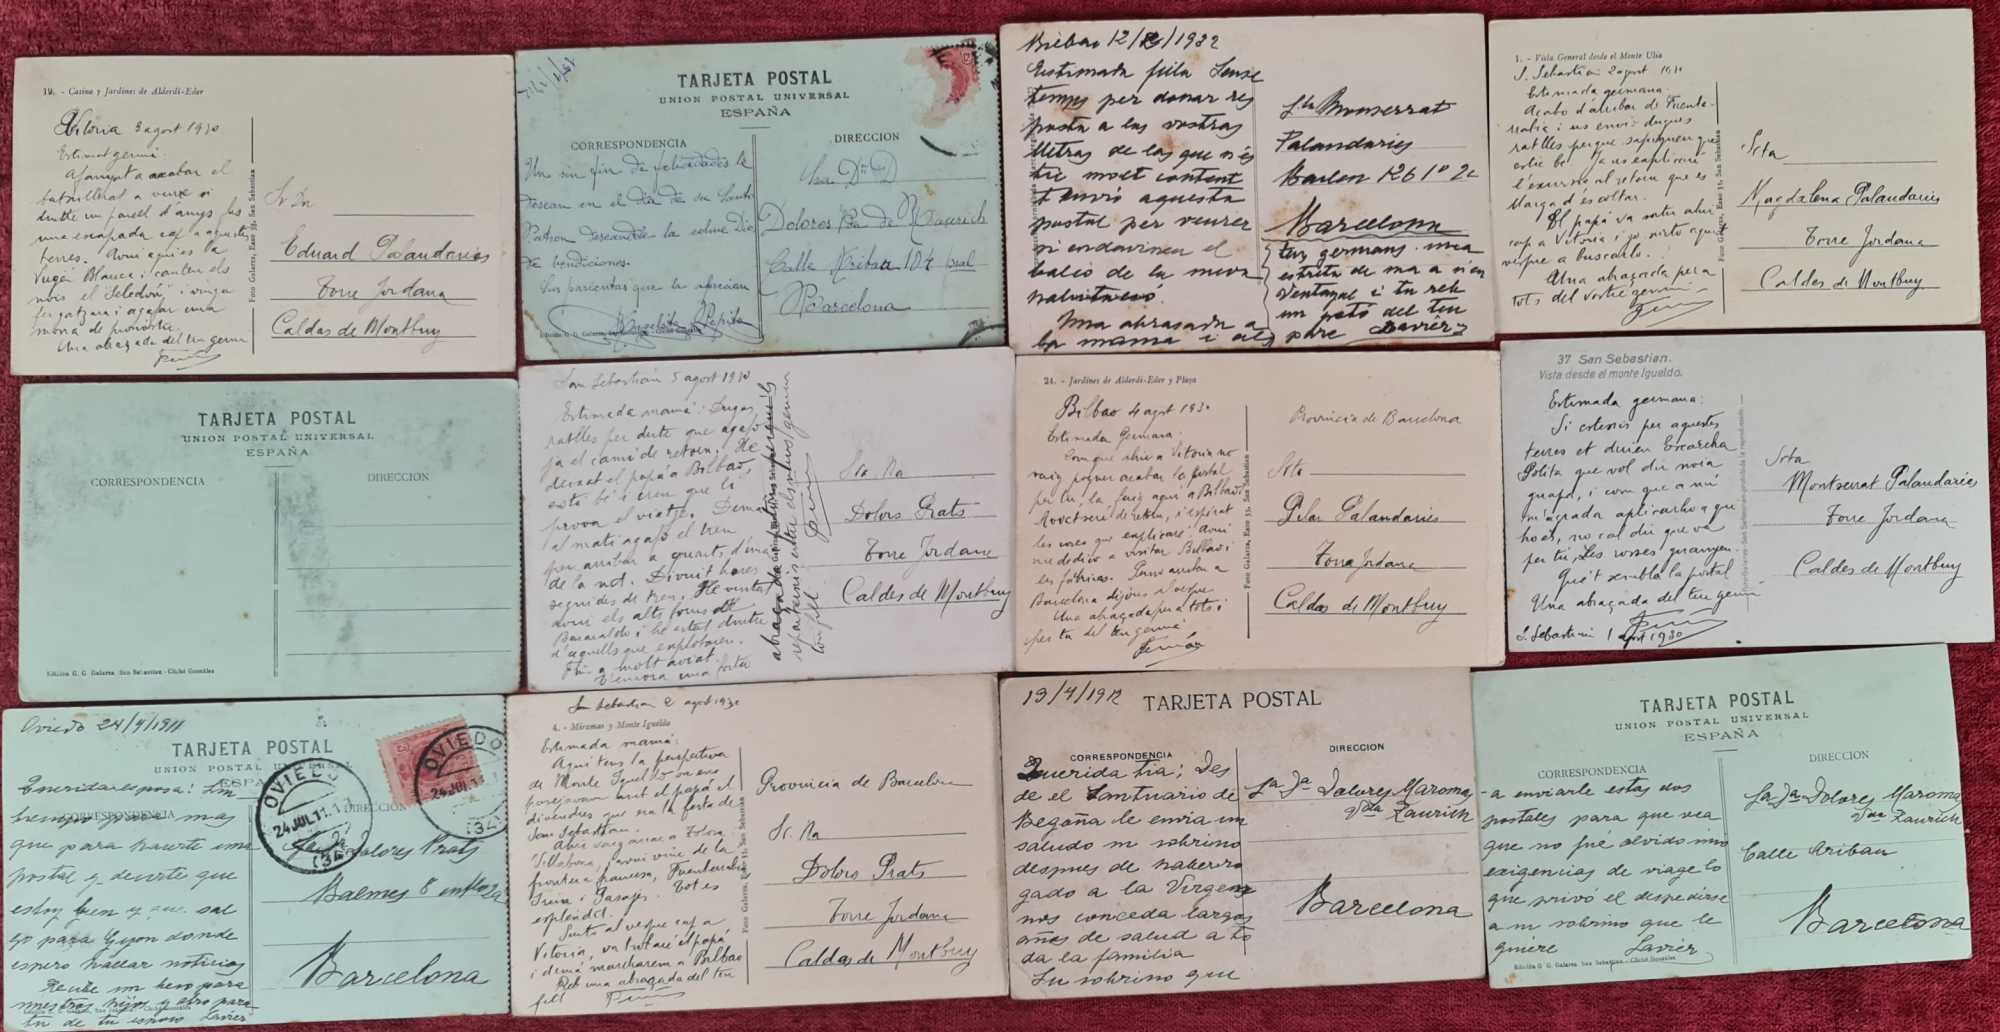 19. - Casino y Jardines de Alderdi-Eder
Vitoria 3 agost 1930
Estimat germà:
Afanya't a acabar el
batxillerat a veure si
dintre un parell d'anys fas
una escapada cap a aquestes
terres. Avui aquí es la
Vergen Blanca i canten els
nois el "Seledón"
Una abraçada del teu germà
Foto Galarza, Easo 35, San Sebastian
Sr. Dn.
Eduard Palandaries
Torre Jordana
Caldas de Montbuy
TARJETA POSTAL
UNION POSTAL UNIVERSAL
ESPAÑA
CORRESPONDENCIA
DIRECCION
Un sin fin de felicidades le
desean en el dia de su Santo
Patron deseandole la colme Dios
de bendiciones.
Sus parientas que la aprecian
Pepita
Dolores
Calle Aribau 104 pral
Barcelona
Bilbao 12/ /1932
Estimada filla Sense
temps per donar res
posta a las vostras
lletras de las que n'és
tic molt content
t'envió aquesta
postal per veurer
si endavineu el
balcó de la meva
habitació.
Una abrasada a
la mama i als
Sta Monserrat
Palandaries
Bailen 126 1º 2ª
Barcelona
teus germans. una
estreta de ma a n'en
Ventayol i tu reb
un petó del teu
pare Xavier
1. - Vista General desde el Monte Ulia
S. Sebastián 2 agost 1930
Estimada germana:
Acabo d'arribar de Fuente-
rrabia i us envio dugues
ratlles perque sapigueu que
estic bé. Ja us explicaré
l'excursió al retorn que es
llarga d'escoltar.
El papá va sortir ahir
cap a Vitoria i jo surto aquest
vespre a buscarlo.
Una abraçada per a
tots del vostre germà
Foto Galarza, Easo 35, San Sebastian
Srta
Magdalena Palandaries
Torre Jordana
Caldes de Montbuy
TARJETA POSTAL
UNION POSTAL UNIVERSAL
ESPAÑA
CORRESPONDENCIA
DIRECCION
Edición G. G. Galarza, San Sebastian - Cliché González
San Sebastián 5 agost 1930
Estimada mamá: Dugas
ratlles per dirte que agafo
ja el camí de retorn. He
deixat el papá a Bilbao,
está bé i creu que li
prova el viatge. Demá
al matí agafo el tren
per arribar a quarts d'una
de la nit. Divuit hores
seguides de tren. He visitat
avui els alts forns de
Baracaldo i he estat dintre
d'aquells que exploten.
Fins a molt aviat.
T'envia una forta
abraçada
ton fill
Sra Na
Dolors Prats
Torre Jordana
Caldes de Montbuy
24. - Jardines de Alderdi-Eder y Playa
Bilbao 4 agst 1930
Estimada Germana:
Com que ahir a Vitoria no
vaig poguer acabar la postal
per tú, la faig aquí a Bilbao.
les coses que explicaré. Avui
me dedico a visitar Bilbao i
les fábricas. Penso arribar a
Barcelona dijous al vespre
Una abraçada per a tots i
per tu del teu germà
Foto Galarza, Easo 35, San Sebastian
Provincia de Barcelona
Srta
Pilar Palandaries
Torre Jordana
Caldas de Montbuy
37 San Sebastian.
Vista desde el monte Igueldo.
Estimada germana:
Si estessis per aquestes
terres et dirien Escarcha
Polita que vol dir noia
guapa, i com que a mi
m'agrada aplicarho a qui
ho es, no cal dir que va
per tú. Les coses guanyen.
Què't sembla la postal
Una abraçada del teu germà
S. Sebastián 1 agost 1930
Srta
Montserrat Palandaries
Torre Jordana
Caldes de Montbuy
Oviedo 24/7/1911
TARJETA POSTAL
UNION POSTAL UNIVERSAL
ESPAÑA
CORRESPONDENCIA
DIRECCION
OVIEDO
24 JUL 11
(34)
OVIEDO
24 JUL 11
(34)
Querida esposa: Sin
tiempo para mas
que para hacerte una
postal y decirte que
estoy bien y que sal
go para Gijon donde
espero hallar noticias
Recibe un beso para
nuestros hijos y otro para
tu de tu esposo Xavier
Dolores Prats
Balmes 8
Barcelona
San Sebastian 2 agost 1930
4. - Miramar y Monte Igueldo
Estimada mamá:
Aquí tens la perspectiva
de Monte Igueldo on ens
passejavem amb el papá el
divendres que era la festa de
San Sebastian.
Ahir vaig anar a Tolosa
Villabona, i avui vinc de la
frontera francesa, Fuenterrabia
Irun i Pasajes. Tot es
esplèndit.
Surto al vespre cap a
Vitoria, on trobaré el papá,
i demá marcharem a Bilbao
Reb una abraçada del teu
fill
Foto Galarza, Easo 35, San Sebastian
Provincia de Barcelona
Sr. Na
Dolors Prats
Torre Jordana
Caldas de Montbuy
13/7/1912
TARJETA POSTAL
CORRESPONDENCIA
DIRECCION
Querida tia; Des
de el Santuario de
Begoña le envia un
saludo su sobrino
despues de haber ro
gado a la Virgen
nos conceda largos
años de salud a to
da la familia
Su sobrino que
Sa Da Dolores Maroma
Vda Zaurich
Barcelona
TARJETA POSTAL
UNION POSTAL UNIVERSAL
ESPAÑA
CORRESPONDENCIA
DIRECCION
-a enviarle estas dos
postales para que vea
que no fué olvido sino
exigencias de viage lo
que privó el despedirse
a su sobrino que le
quiere Xavier
Edición G. G. Galarza, San Sebastian - Cliché González
Sa Da Dolores Maroma
Vda Zaurich
Calle Aribau
Barcelona